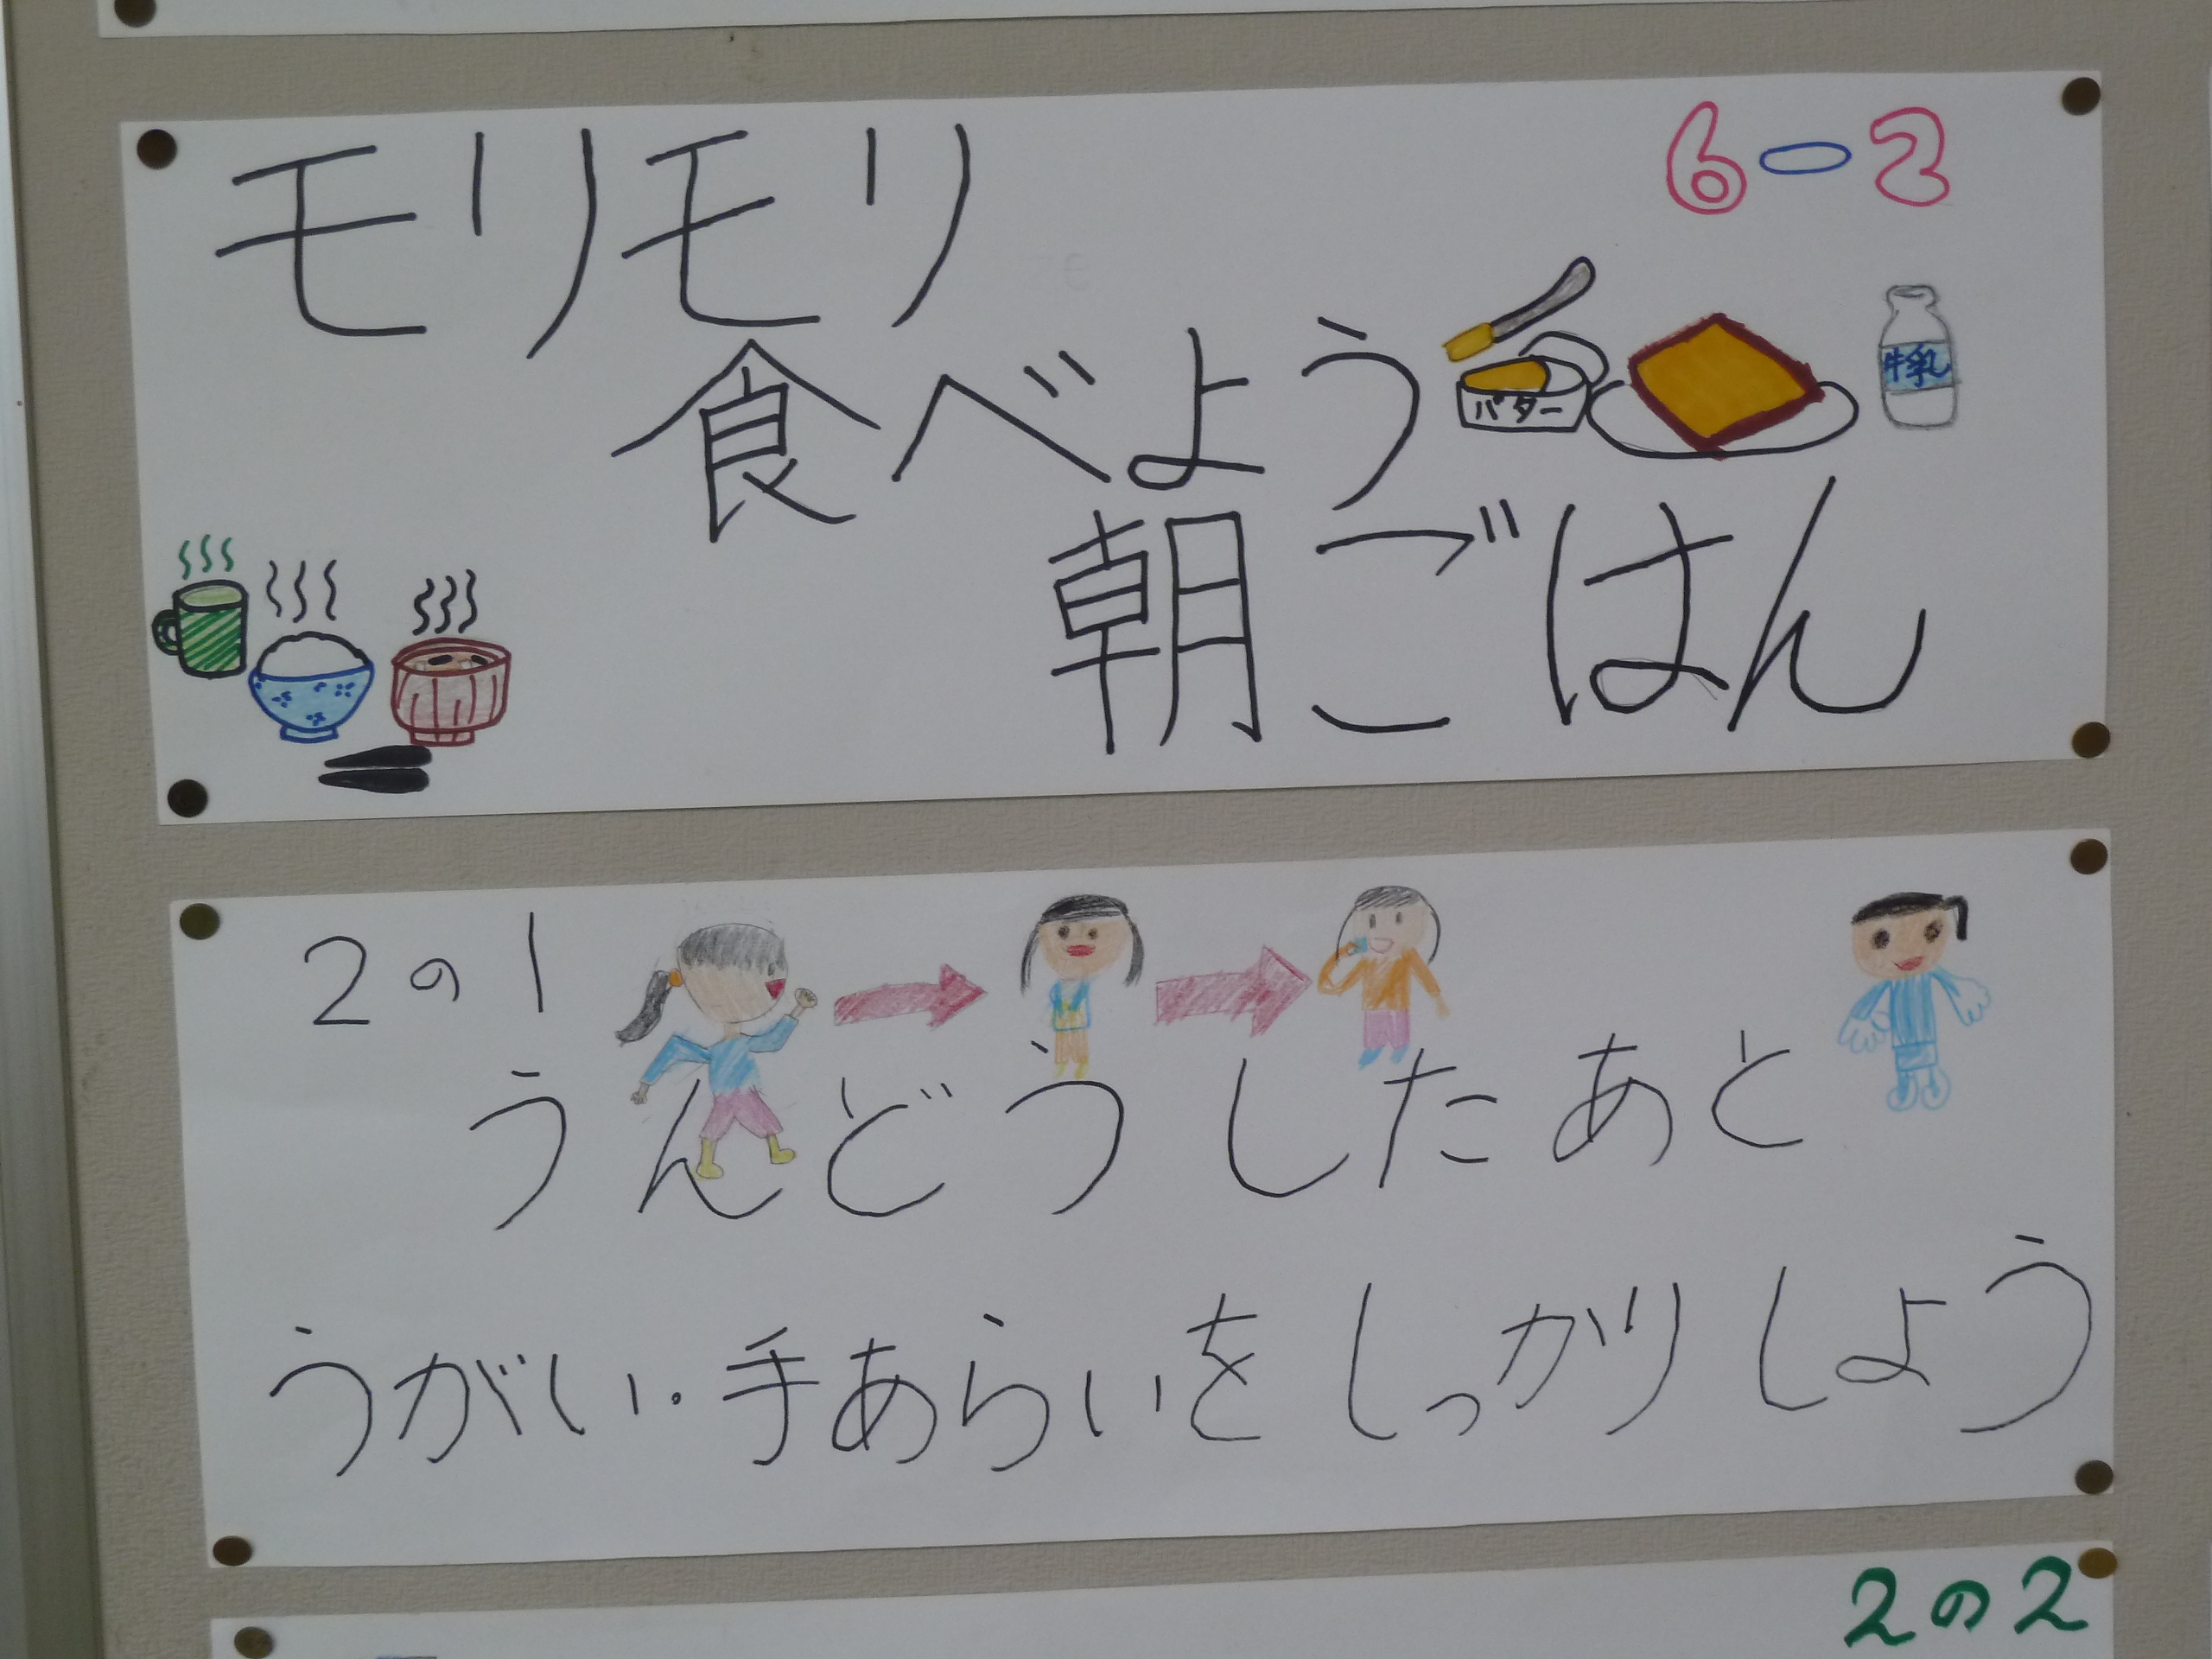 6-2
モリモリ
食べよう
バター
牛乳
朝ごはん
2の1
うんどうしたあと
うがい・手あらいを しっかり しよう
2の2